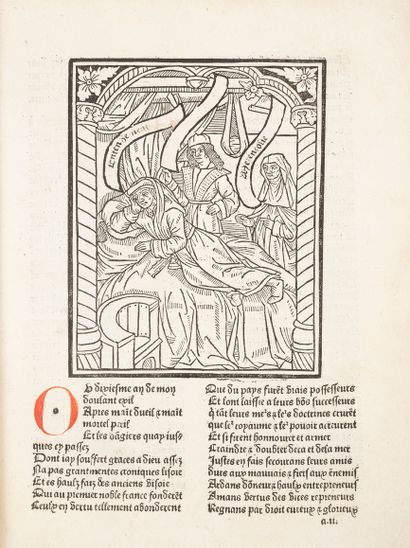 OV dixiesme an de mon
doulant exil
Apres mait dueil & mait
mortel peril
Et les dāgiers quay ius-
ques cy passez
Dont iay souffert graces a dieu assez
Na pas grantment es croniques lisoie
Et es haulx faiz des anciens visoie
Qui au premier noble france fonderēt
Ceulx en vertu tellement abonderent
Que du pays furēt vrais possesseurs
Et lont laissie a leurs bōs successeurs
q̄ tāt leurs & doctrines creurēt
que le royaume & le pouoir acreurēt
Et si firent honnourer et armer
Craindre & doubter deca et dela mer
Justes en fais secourans leurs amis
durs aux mauuais & fiers aux ēnemis
Ardans dōneurs & haulx ētrepreneurs
Amans vertus des vices repreneurs
Regnans par droit eureux & glorieux
a.ii.